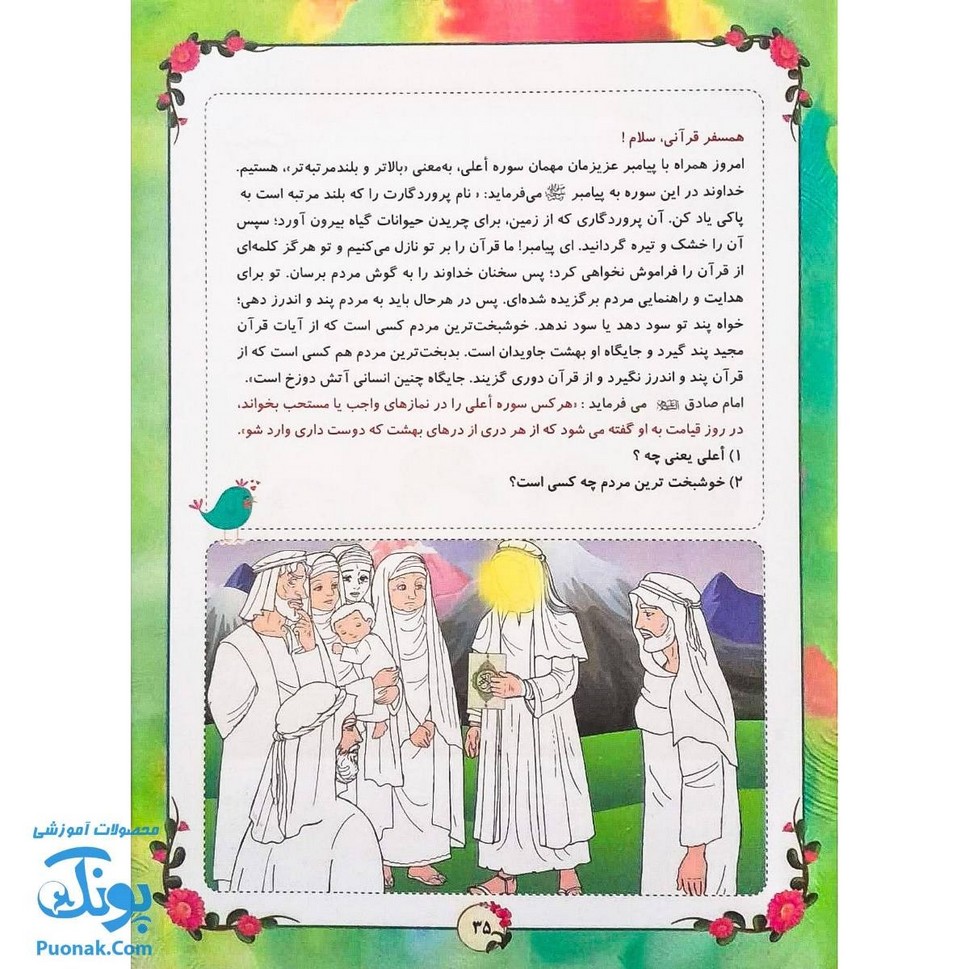 همسفر قرآنی، سلام !
امروز همراه با پیامبر عزیزمان مهمان سوره أعلی، به‌معنی «بالاتر و بلندمرتبه‌تر»، هستیم.
خداوند در این سوره به پیامبر ﷺ می‌فرماید: « نام پروردگارت را که بلند مرتبه است به
پاکی یاد کن. آن پروردگاری که از زمین، برای چریدن حیوانات گیاه بیرون آورد؛ سپس
آن را خشک و تیره گردانید. ای پیامبر! ما قرآن را بر تو نازل می‌کنیم و تو هرگز کلمه‌ای
از قرآن را فراموش نخواهی کرد؛ پس سخنان خداوند را به گوش مردم برسان. تو برای
هدایت و راهنمایی مردم برگزیده شده‌ای. پس در هرحال باید به مردم پند و اندرز دهی؛
خواه پند تو سود دهد یا سود ندهد. خوشبخت‌ترین مردم کسی است که از آیات قرآن
مجید پند گیرد و جایگاه او بهشت جاویدان است. بدبخت‌ترین مردم هم کسی است که از
قرآن پند و اندرز نگیرد و از قرآن دوری گزیند. جایگاه چنین انسانی آتش دوزخ است».
امام صادق می فرماید : «هرکس سوره أعلی را در نمازهای واجب یا مستحب بخواند،
در روز قیامت به او گفته می شود که از هر دری از درهای بهشت که دوست داری وارد شو».
۱) أعلی یعنی چه ؟
۲) خوشبخت ترین مردم چه کسی است؟
۳۵
محصولات آموزشی
پونک
Puonak.Com